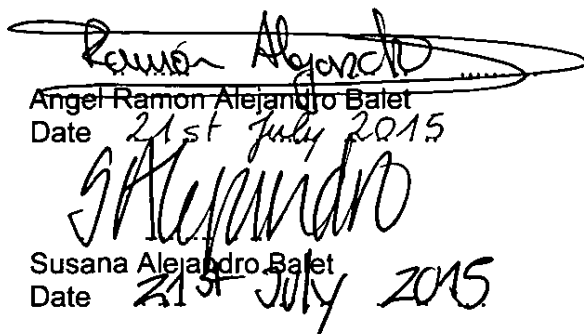 Ramón Alejandro
Angel Ramon Alejandro Balet
Date 21st July 2015
SAlejandro
Susana Alejandro Balet
Date 21st July 2015